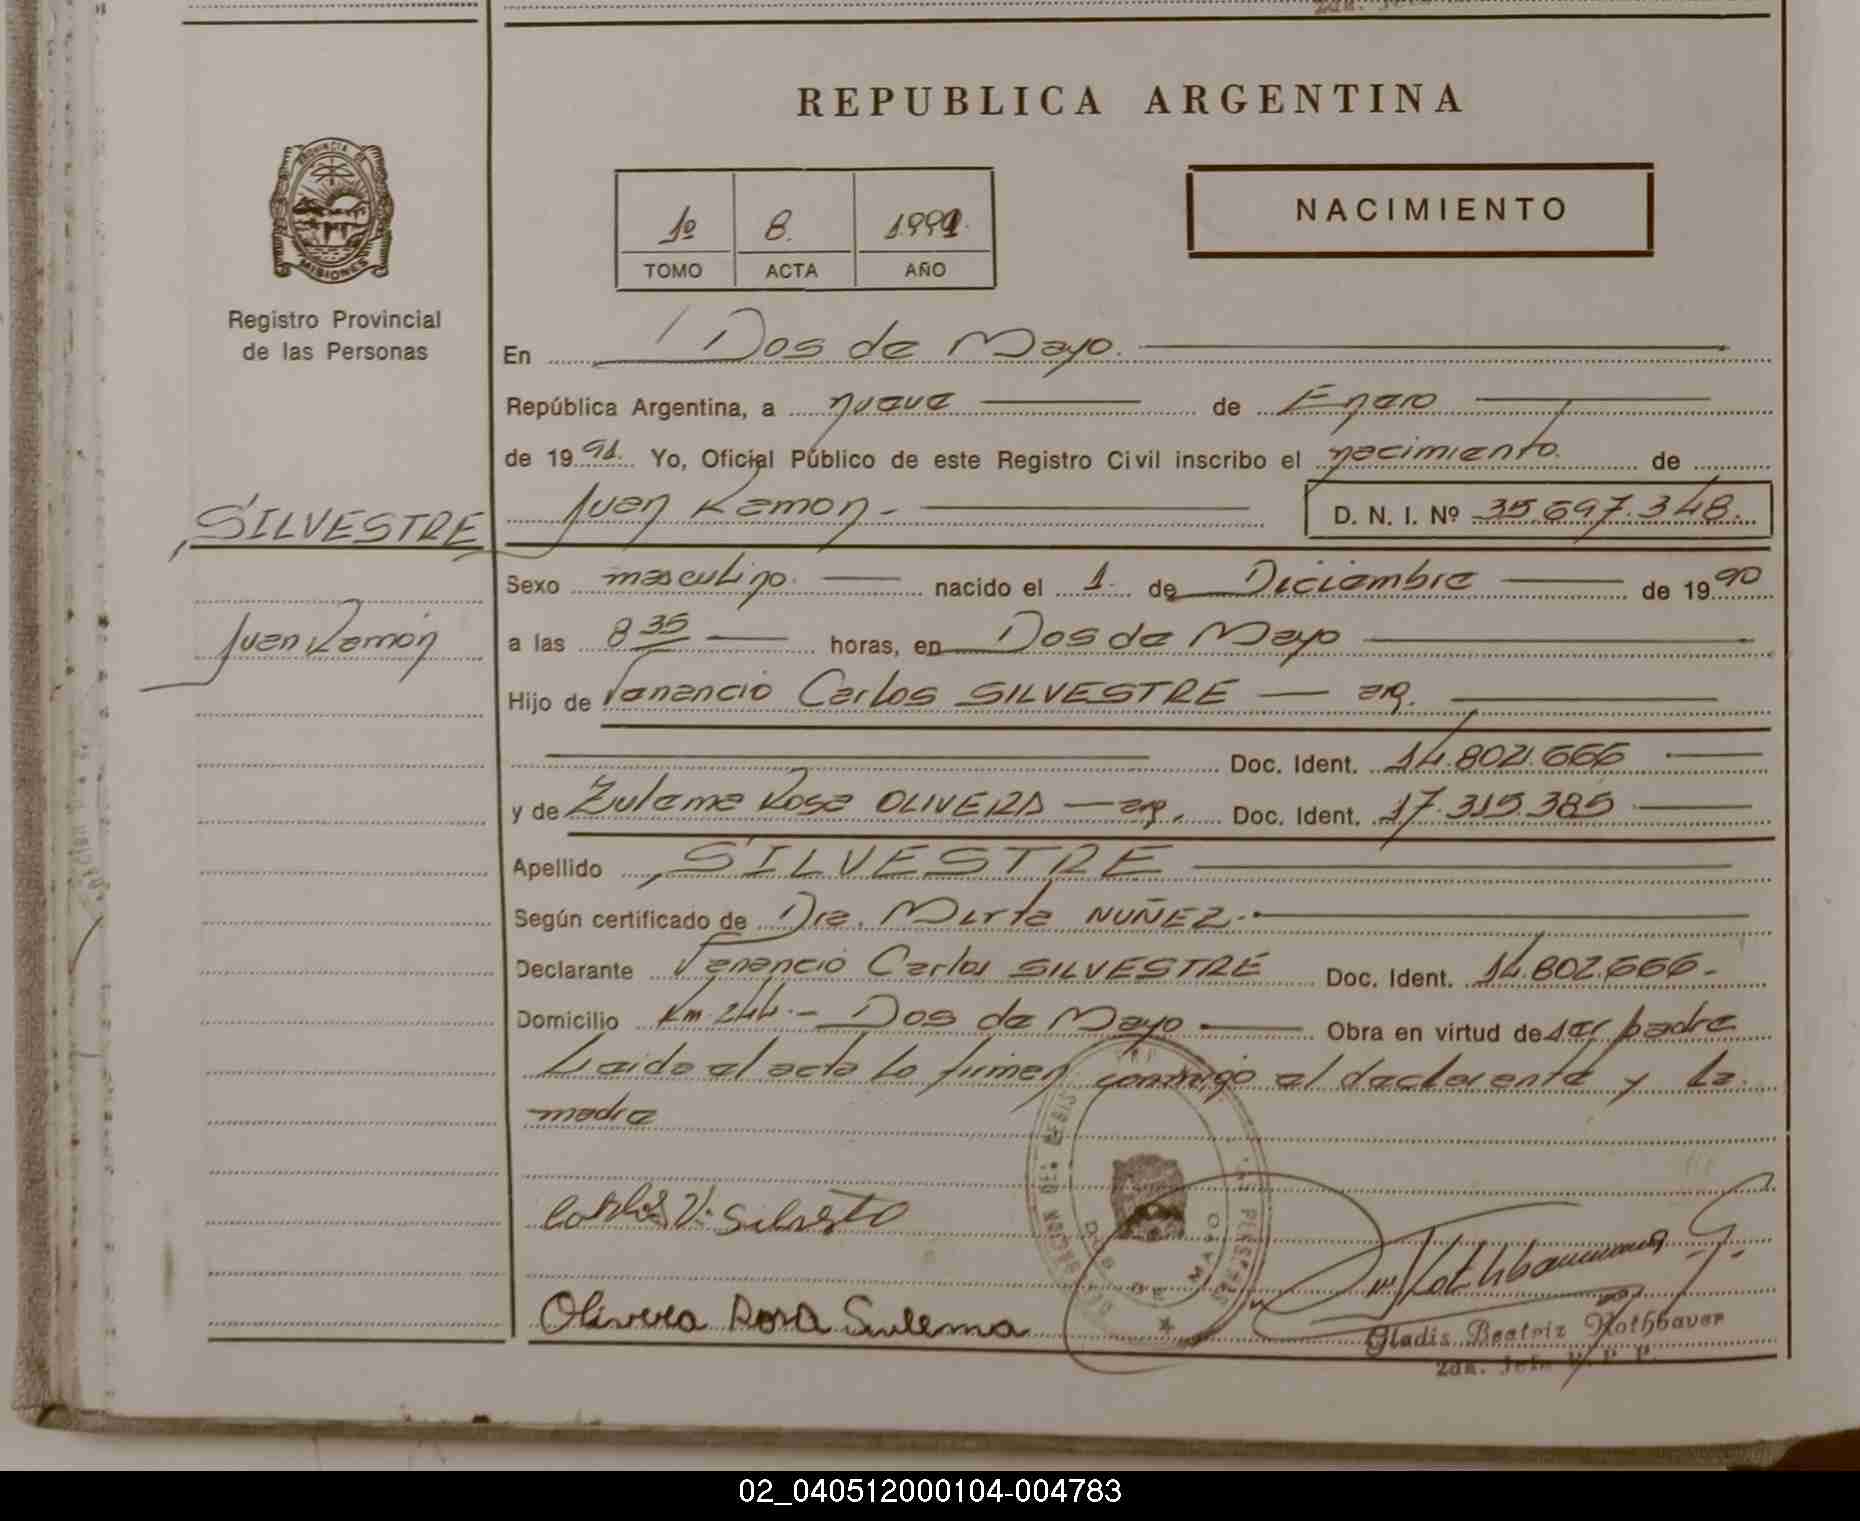 REPUBLICA ARGENTINA
PROVINCIA DE
MISIONES
Registro Provincial
de las Personas
1º 8. 1991.
TOMO ACTA AÑO
NACIMIENTO
En Dos de Mayo.
República Argentina, a nueve de Enero
de 1991. Yo, Oficial Público de este Registro Civil inscribo el nacimiento. de
SILVESTRE
Juan Ramon.- D. N. I. Nº 35.697.348.
Sexo masculino. nacido el 1. de Diciembre de 1990
Juan Ramón
a las 8 35 horas, en Dos de Mayo
Hijo de Venancio Carlos SILVESTRE — arg.
Doc. Ident. 14.802.666
y de Zulema Rosa OLIVERA — arg. Doc. Ident. 17.315.385
Apellido SILVESTRE
Según certificado de Dra. Mirta NUÑEZ.
Declarante Venancio Carlos SILVESTRE Doc. Ident. 14.802.666.-
Domicilio Km. 244.- Dos de Mayo Obra en virtud de ser padre
Leida el acta lo firman conmigo el declarante y la
madre
DOS DE MAYO
Carlos V. Silvestre
Rothbauer G.
Olivera Rosa Sulema
Gladis Beatriz Rothbauer
2da. Jefe
02_040512000104-004783